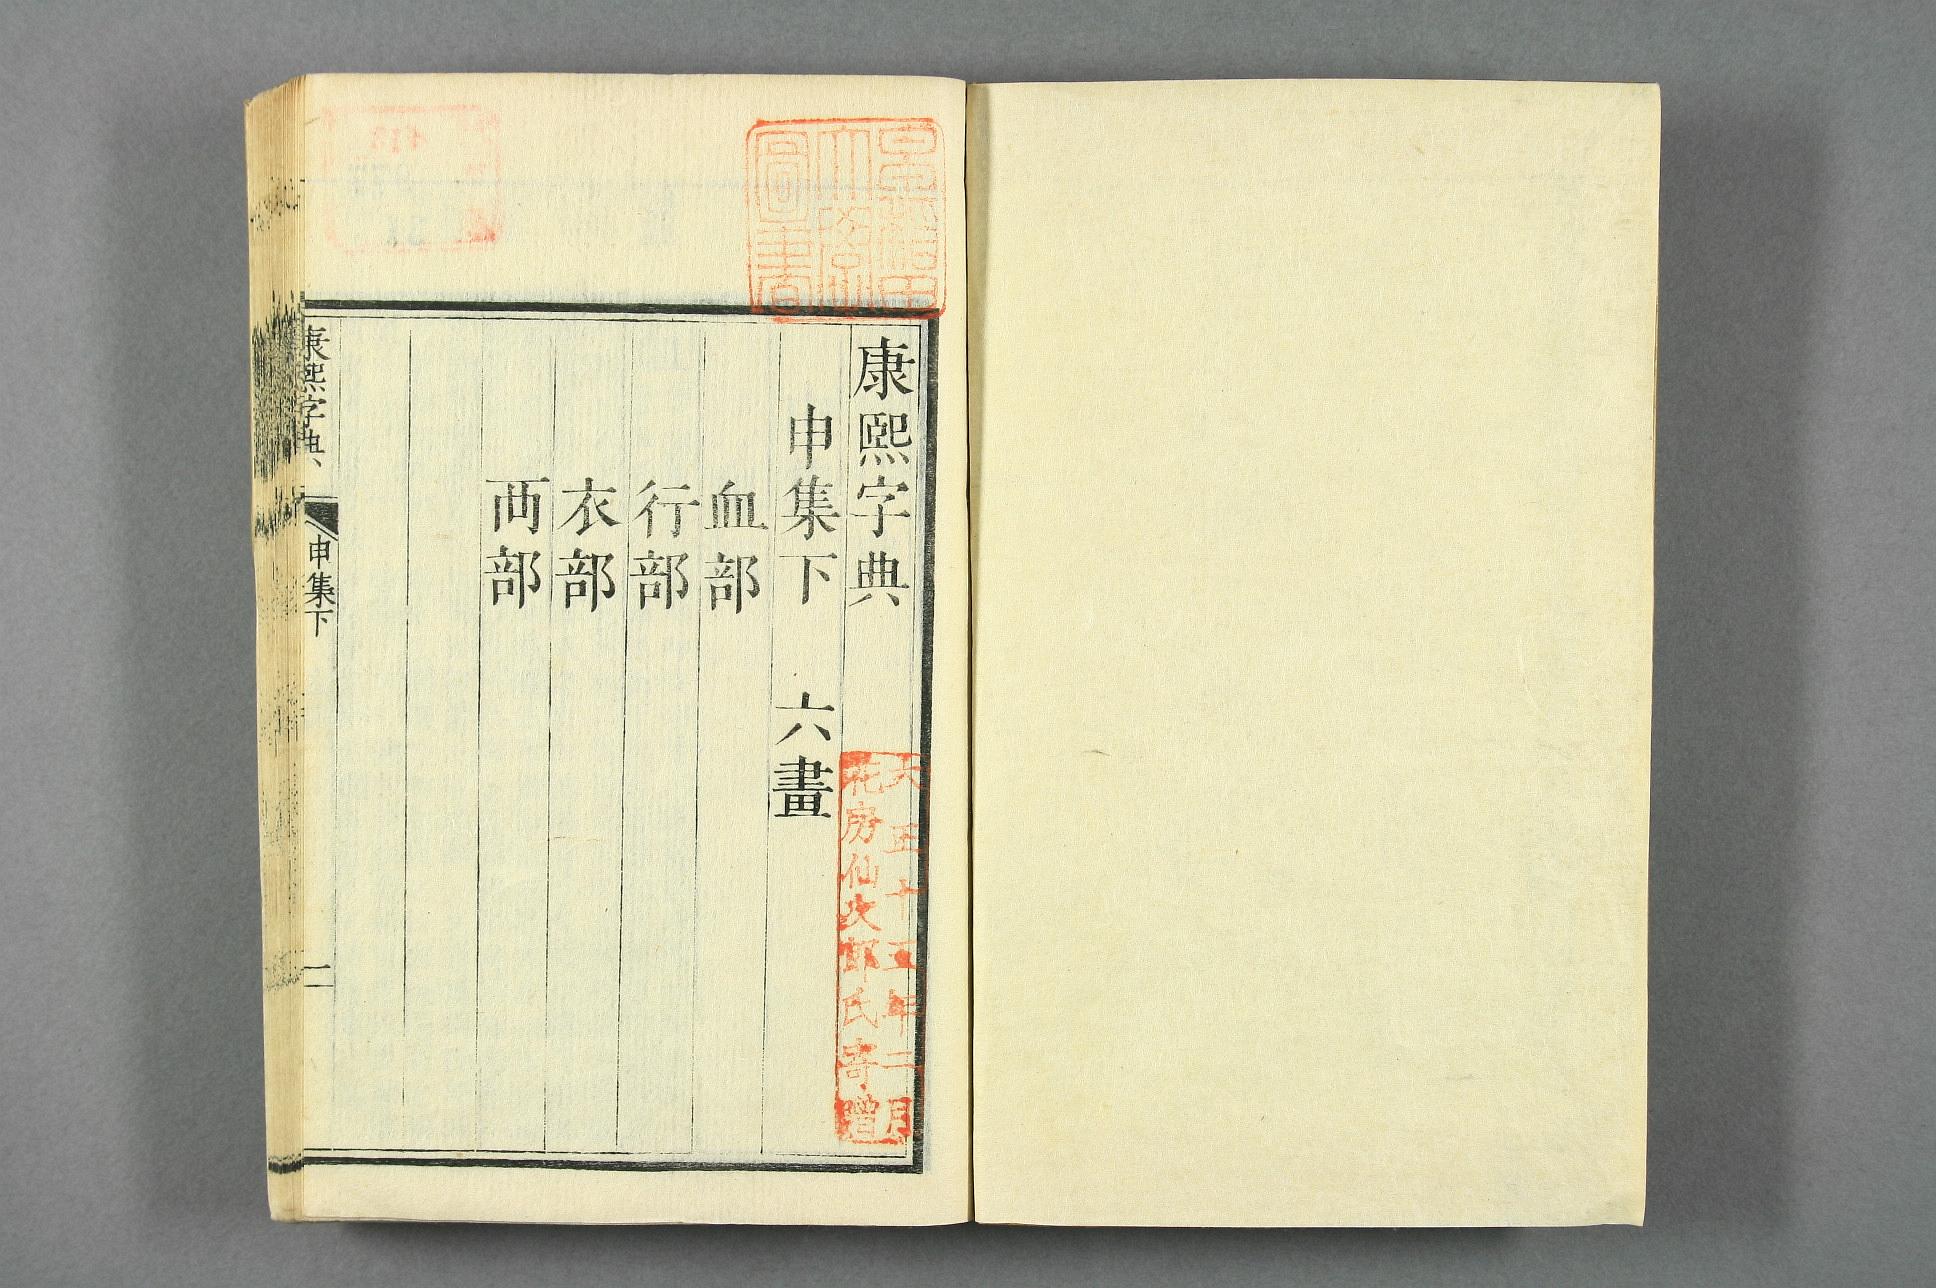 康熙字典
申集下 六畫
血部
行部
衣部
襾部
康熙字典
申集下
二
早稲田
大學
圖書
大正十五年二月
花房仙次郎氏寄贈